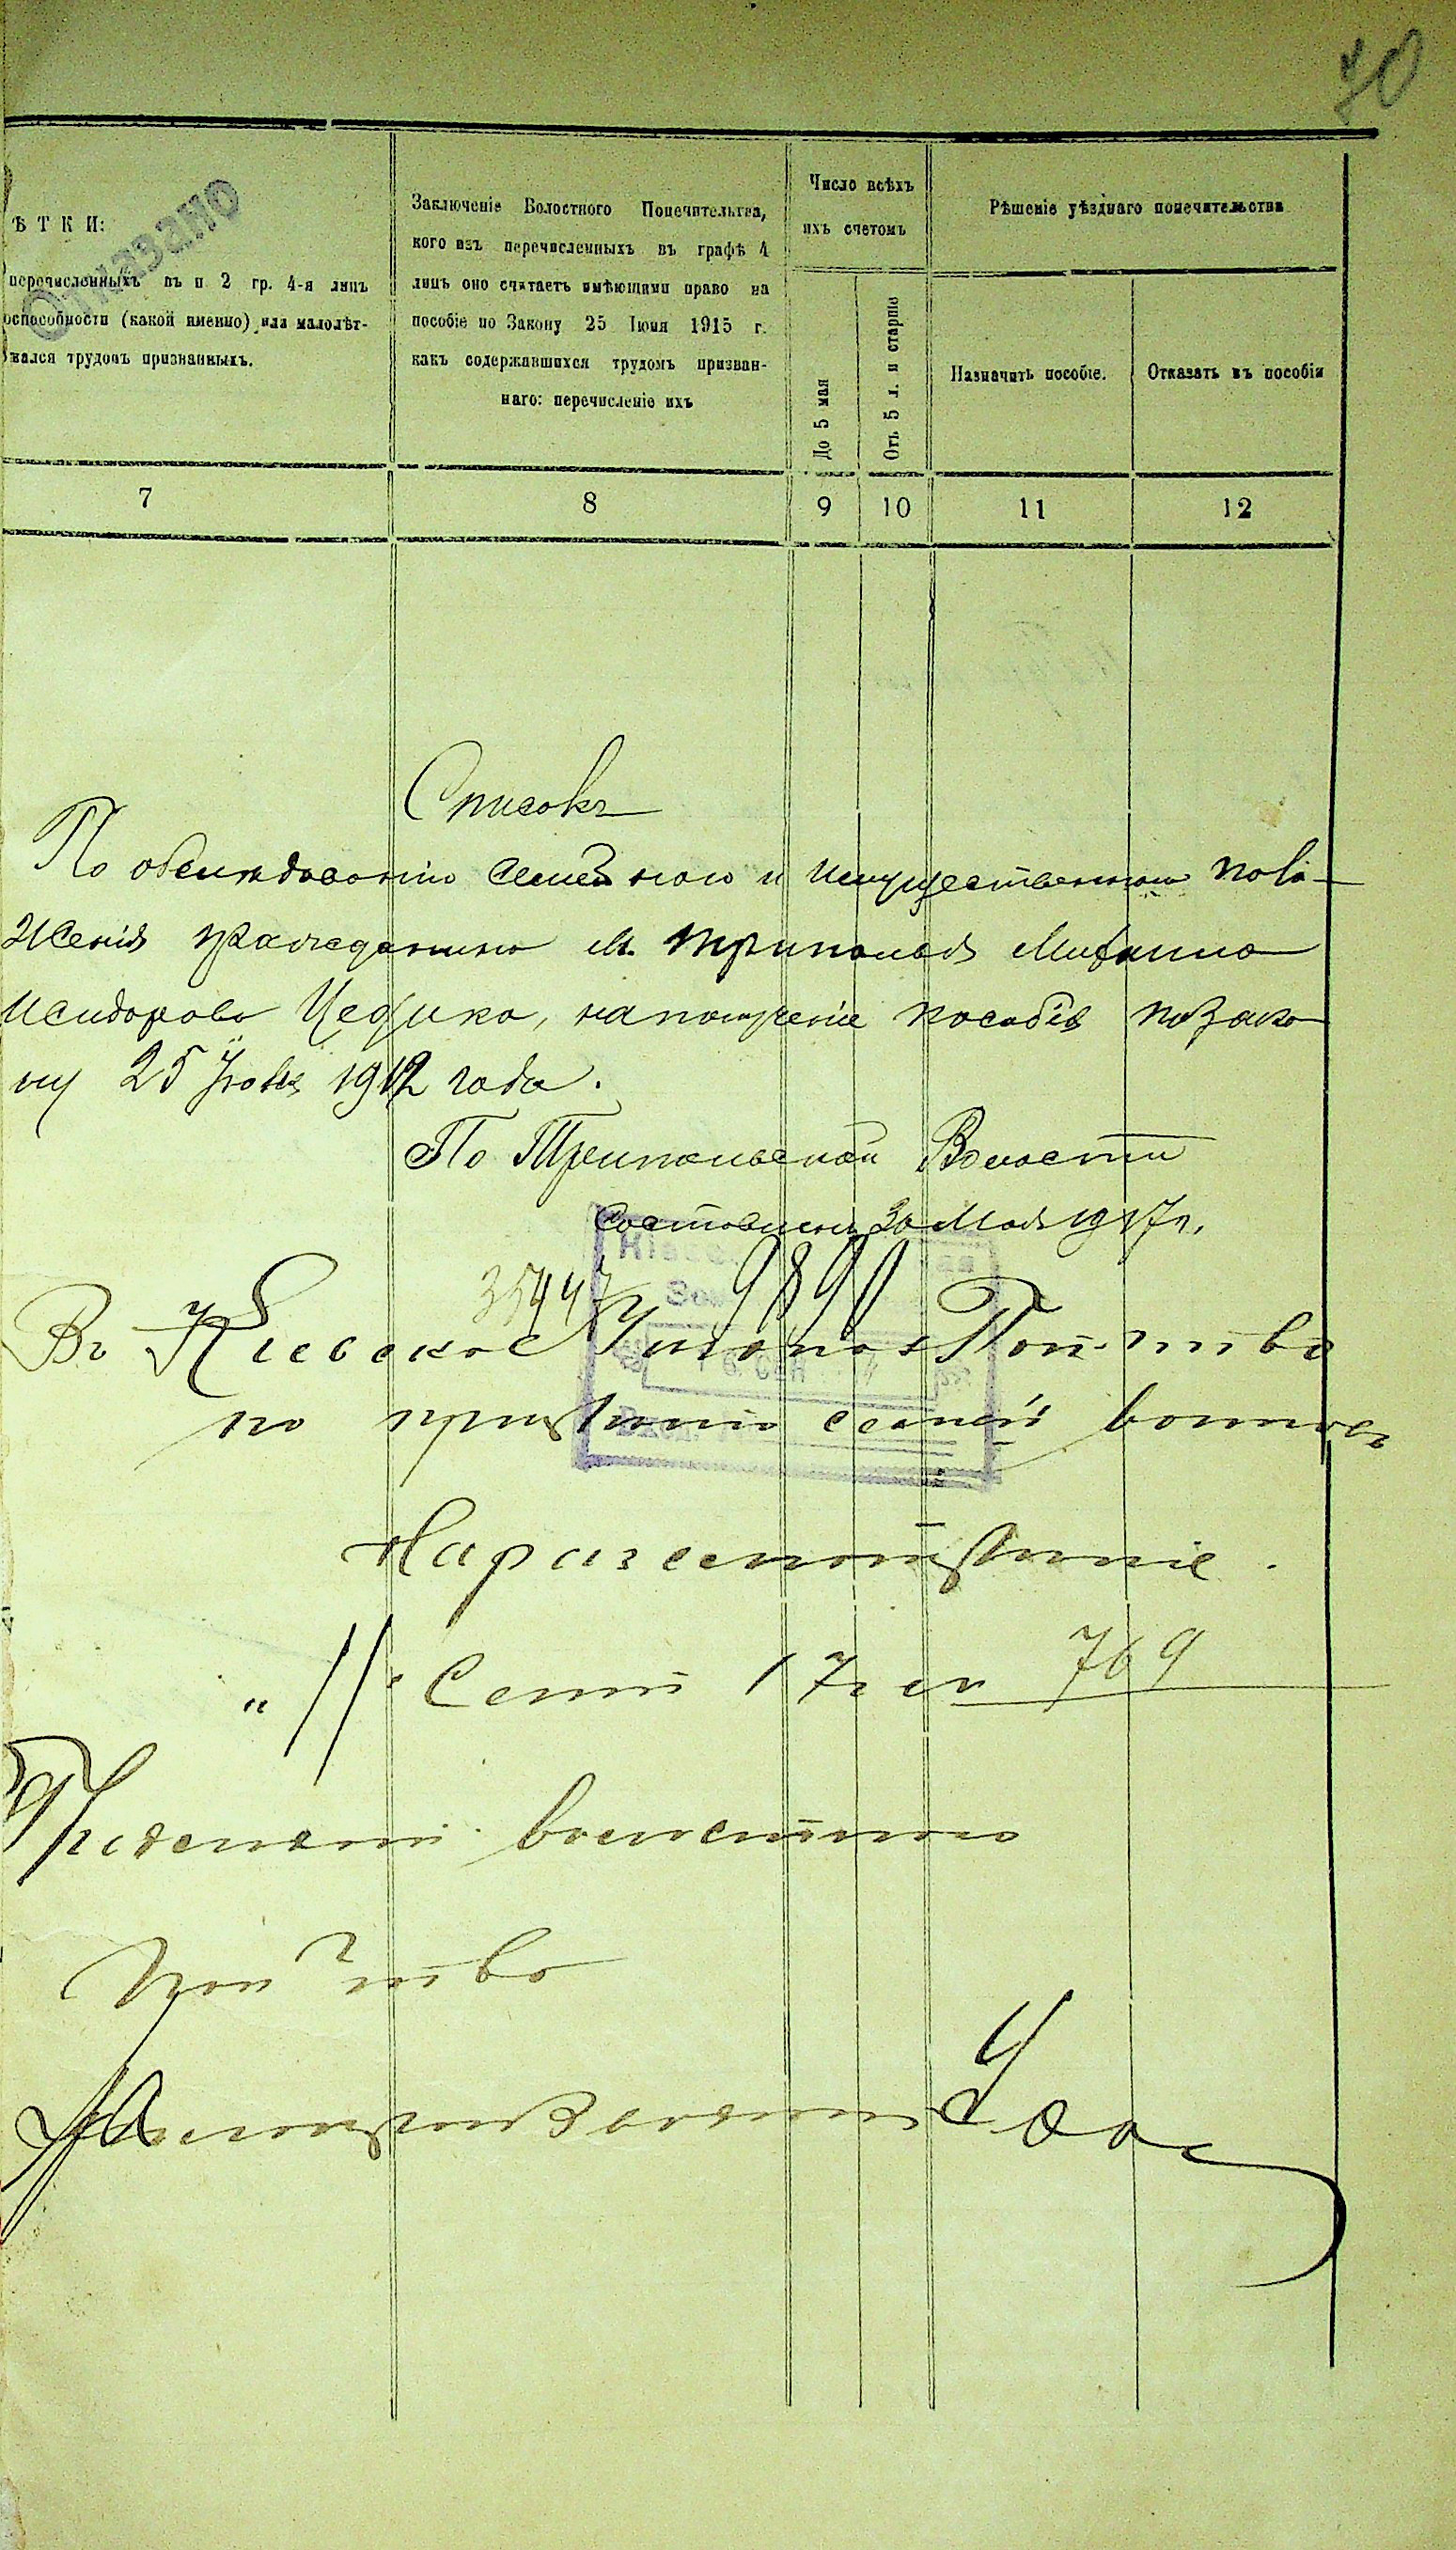 40
Отказано
ѢТКИ:
перечисленныхъ въ п 2 гр. 4-я лицъ
оспособности (какой именно) или малолѣт-
жался трудомъ призванныхъ.
Заключеніе Волостного Попечительства,
кого изъ перечисленныхъ въ графѣ 4
лицъ оно считаетъ имѣющими право на
пособіе по Закону 25 Іюня 1915 г.
какъ содержавшихся трудомъ призван-
наго: перечисленіе ихъ
Число всѣхъ
ихъ счетомъ
До 5 мая
Отъ 5 л. и старше
Рѣшеніе уѣзднаго попечительства
Назначить пособіе.
Отказать въ пособіи
7 8 9 10 11 12
Списокъ
По обслѣдованію Семейного и имущественного поло-
женія гражданина м. Триполья
Исидорова на получение пособія по Зако
ну 25 Іюня 1912 года.
По Трипольской Волости
Составленъ 30 Мая 1917 г.
35447 9890
Въ Кіевское Поп-тво
по призрѣнію семей воиновъ
На разсмотрѣніе.
" 11 " Сент 17 г № 769
Предсѣдат. волостного
Поп-тва